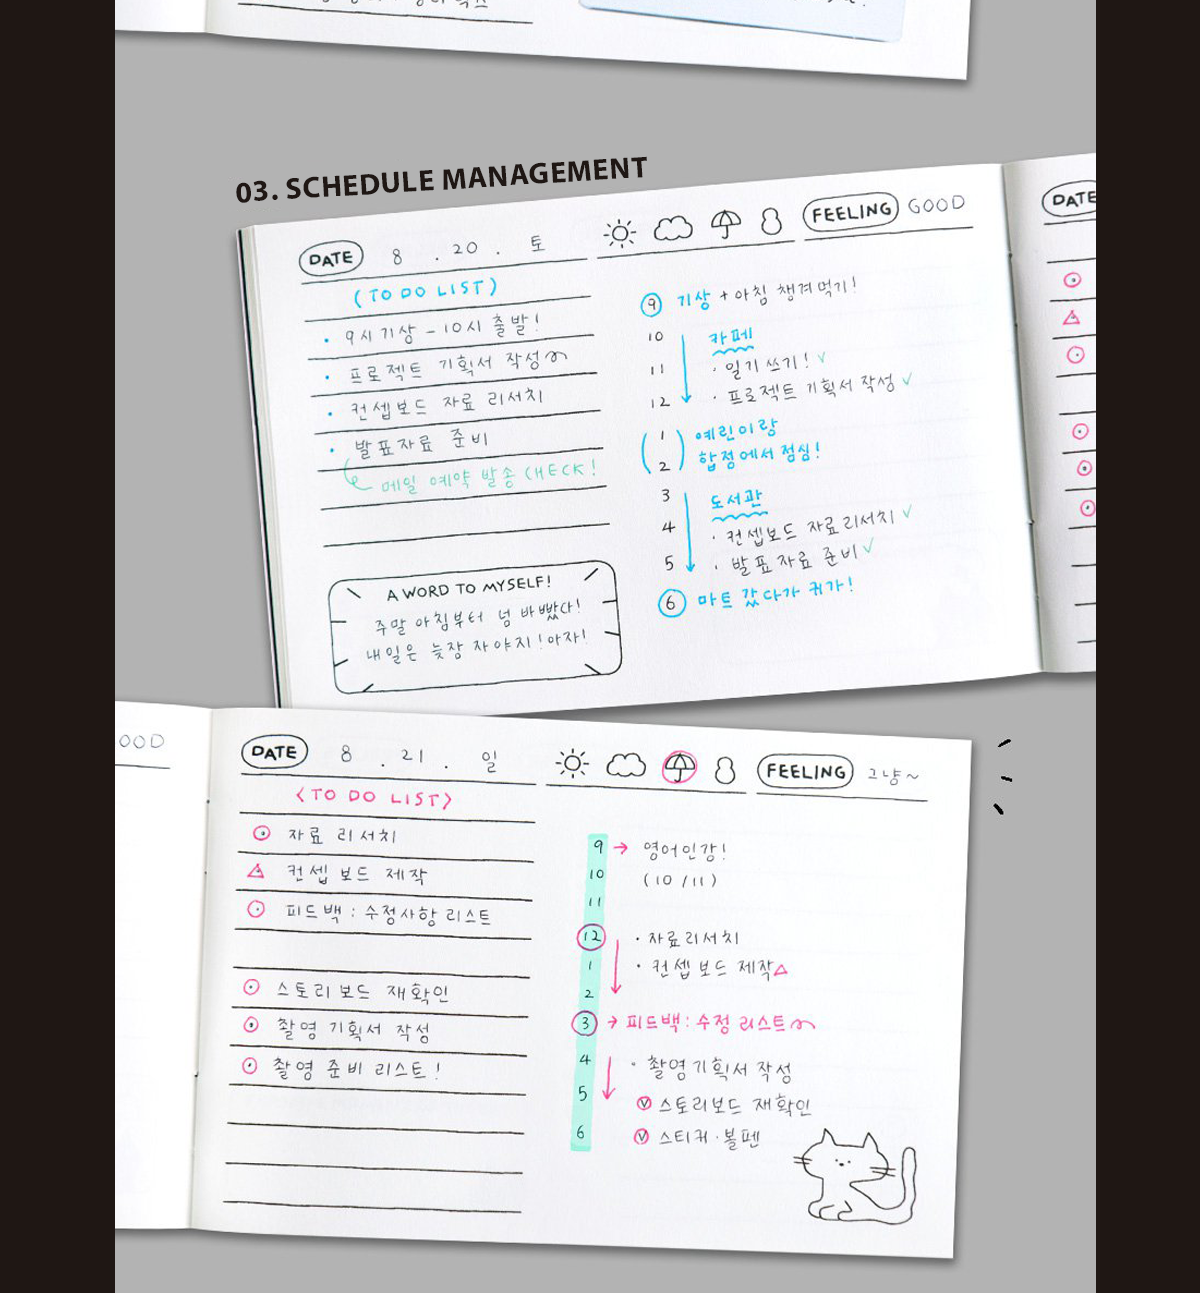 03. SCHEDULE MANAGEMENT
DATE 8 . 20 . 토
FEELING GOOD
(TO DO LIST)
· 9시 기상 - 10시 출발!
· 프로젝트 기획서 작성
· 컨셉보드 자료 리서치
· 발표자료 준비
메일 예약 발송 CHECK!
A WORD TO MYSELF!
주말 아침부터 넘 바빴다!
내일은 늦장 자야지! 아자!
9 기상 + 아침 챙겨먹기!
10 카페
11 · 일기 쓰기! ✓
12 · 프로젝트 기획서 작성 ✓
1 예린이랑
2 합정에서 점심!
3 도서관
4 · 컨셉보드 자료리서치 ✓
5 · 발표자료 준비 ✓
6 마트 갔다가 귀가!
DATE
OOD
DATE 8 . 21 . 일
FEELING 그냥~
<TO DO LIST>
자료 리서치
컨셉 보드 제작
피드백 : 수정사항 리스트
스토리보드 재확인
촬영 기획서 작성
촬영 준비 리스트!
9 → 영어인강!
10 (10/11)
11
12 · 자료리서치
1 · 컨셉보드 제작△
2
3 → 피드백 : 수정 리스트
4 · 촬영기획서 작성
5 ⓥ 스토리보드 재확인
6 ⓥ 스티커·볼펜